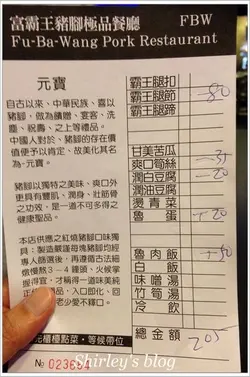 富霸王豬腳極品餐廳 FBW
Fu-Ba-Wang Pork Restaurant
元寶
自古以來、中華民族、喜以
豬腳，做為饋贈、宴客、
洗塵、祝壽、之上等禮品。
中國人對於、豬腳的存在價
值便予以肯定、故美化其名
為-元寶。
豬腳以獨特之美味、爽口外
更具有豐肌、潤身、壯筋骨
之功效，是一道不可多得之
健康聖品。
本店供應之紅燒豬腳口味獨
特：製造嚴謹每塊豬腳均經
專人篩選後，再遵循古法細
燉慢熬3－4鐘頭，火候掌
握得宜，才稱得一道味美純
正
即化，回
老少愛不釋口。
元櫃檯點菜・等候帶位
№ 0236
霸王腿扣
霸王腿節 80
霸王腿蹄
甘美苦瓜
爽口筍絲 35
潤白豆腐 20
潤油豆腐
燙青菜
魯蛋 +20
魯肉飯 +50
白飯
味噌湯
竹筍湯
冷飲
總金額 205
Shirley's blog